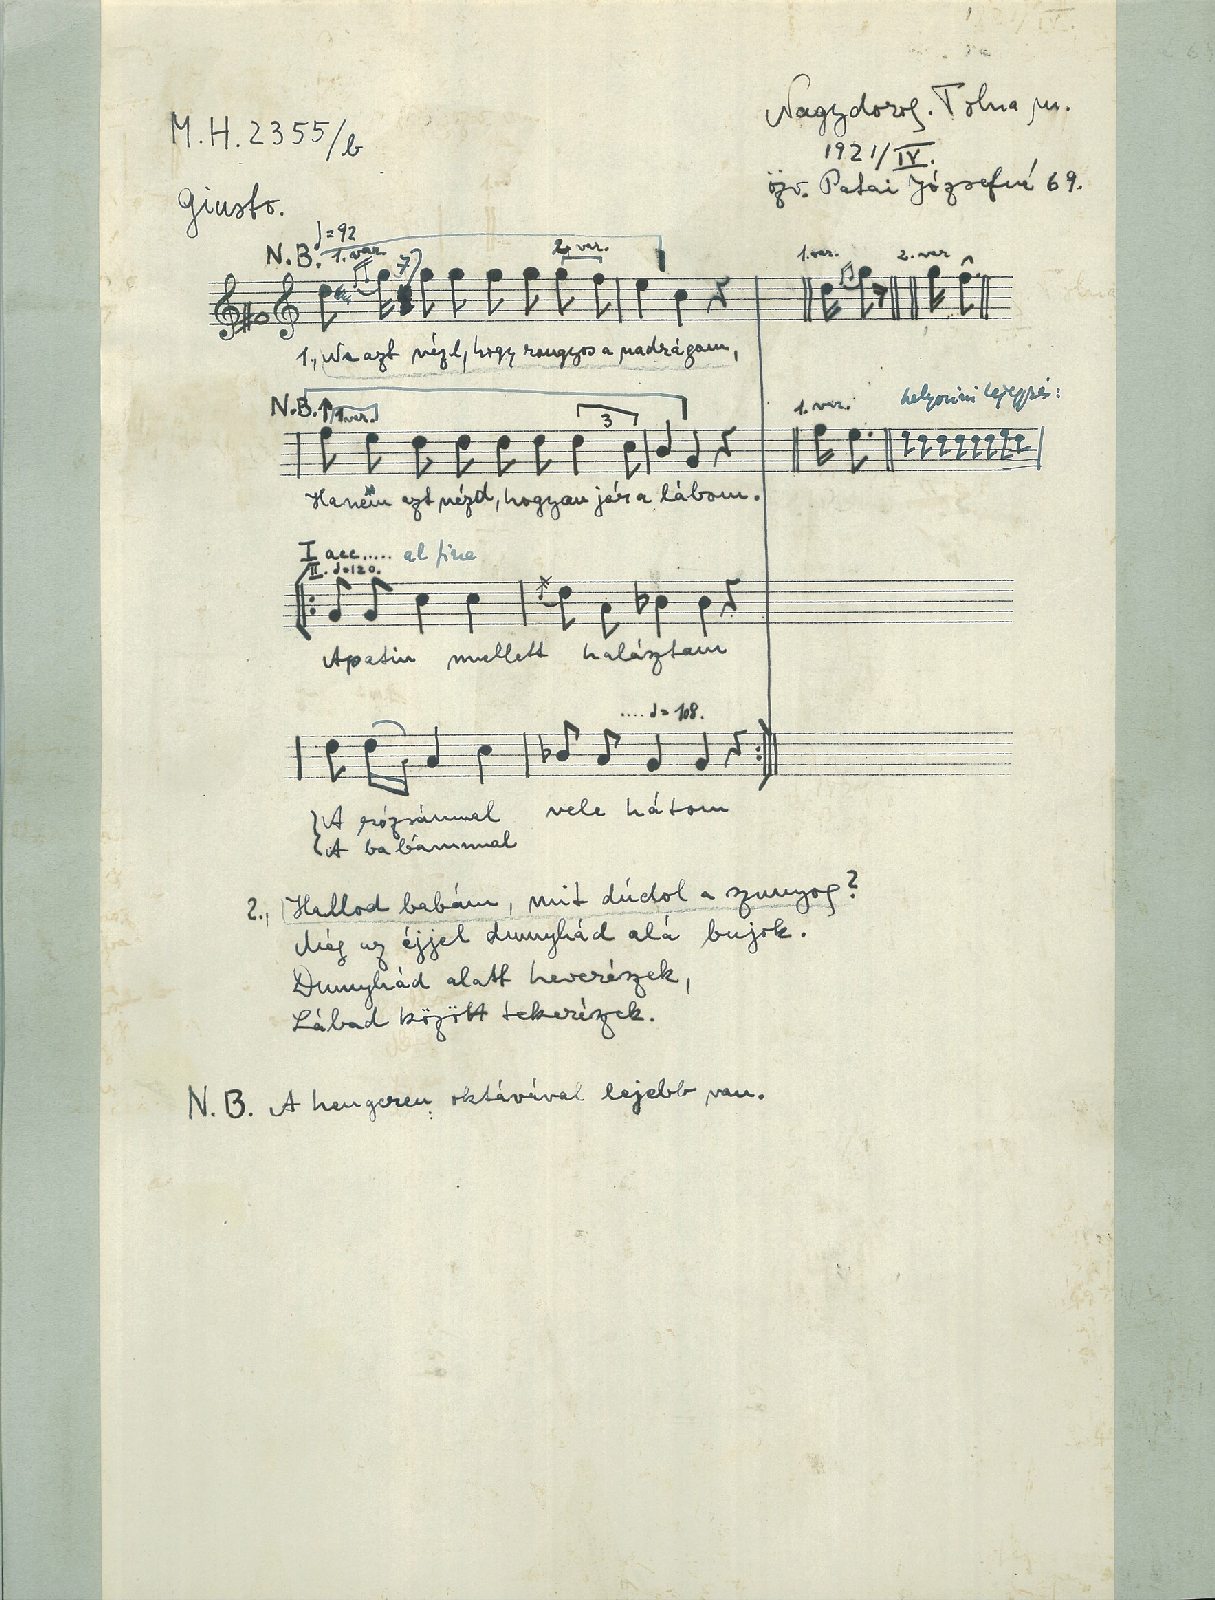 M.H. 2355/b
Nagydorog. Tolna m.
1921/IV.
özv. Patai Józsefné 69.
Giusto.
♩=92
N.B. 1. var. 2. var. 1. var. 2. var
1., Ne azt nézd, hogy rongyos a nadrágom,
N.B. 1. var. 3 1. var. helyszíni lejegyzés:
Hanem azt nézd, hogyan jár a lábom.
I acc..... al fine
II. ♩=120.
Apatin mellett halásztam
.... ♩= 108.
A rózsámmal vele hátom
A babámmal
2., Hallod babám, mit dúdol a szunyog?
Még az éjjel dunyhád alá bujok.
Dunyhád alatt heverészek,
Lábad között tekerészek.
N.B. A hengeren oktávával lejebb van.